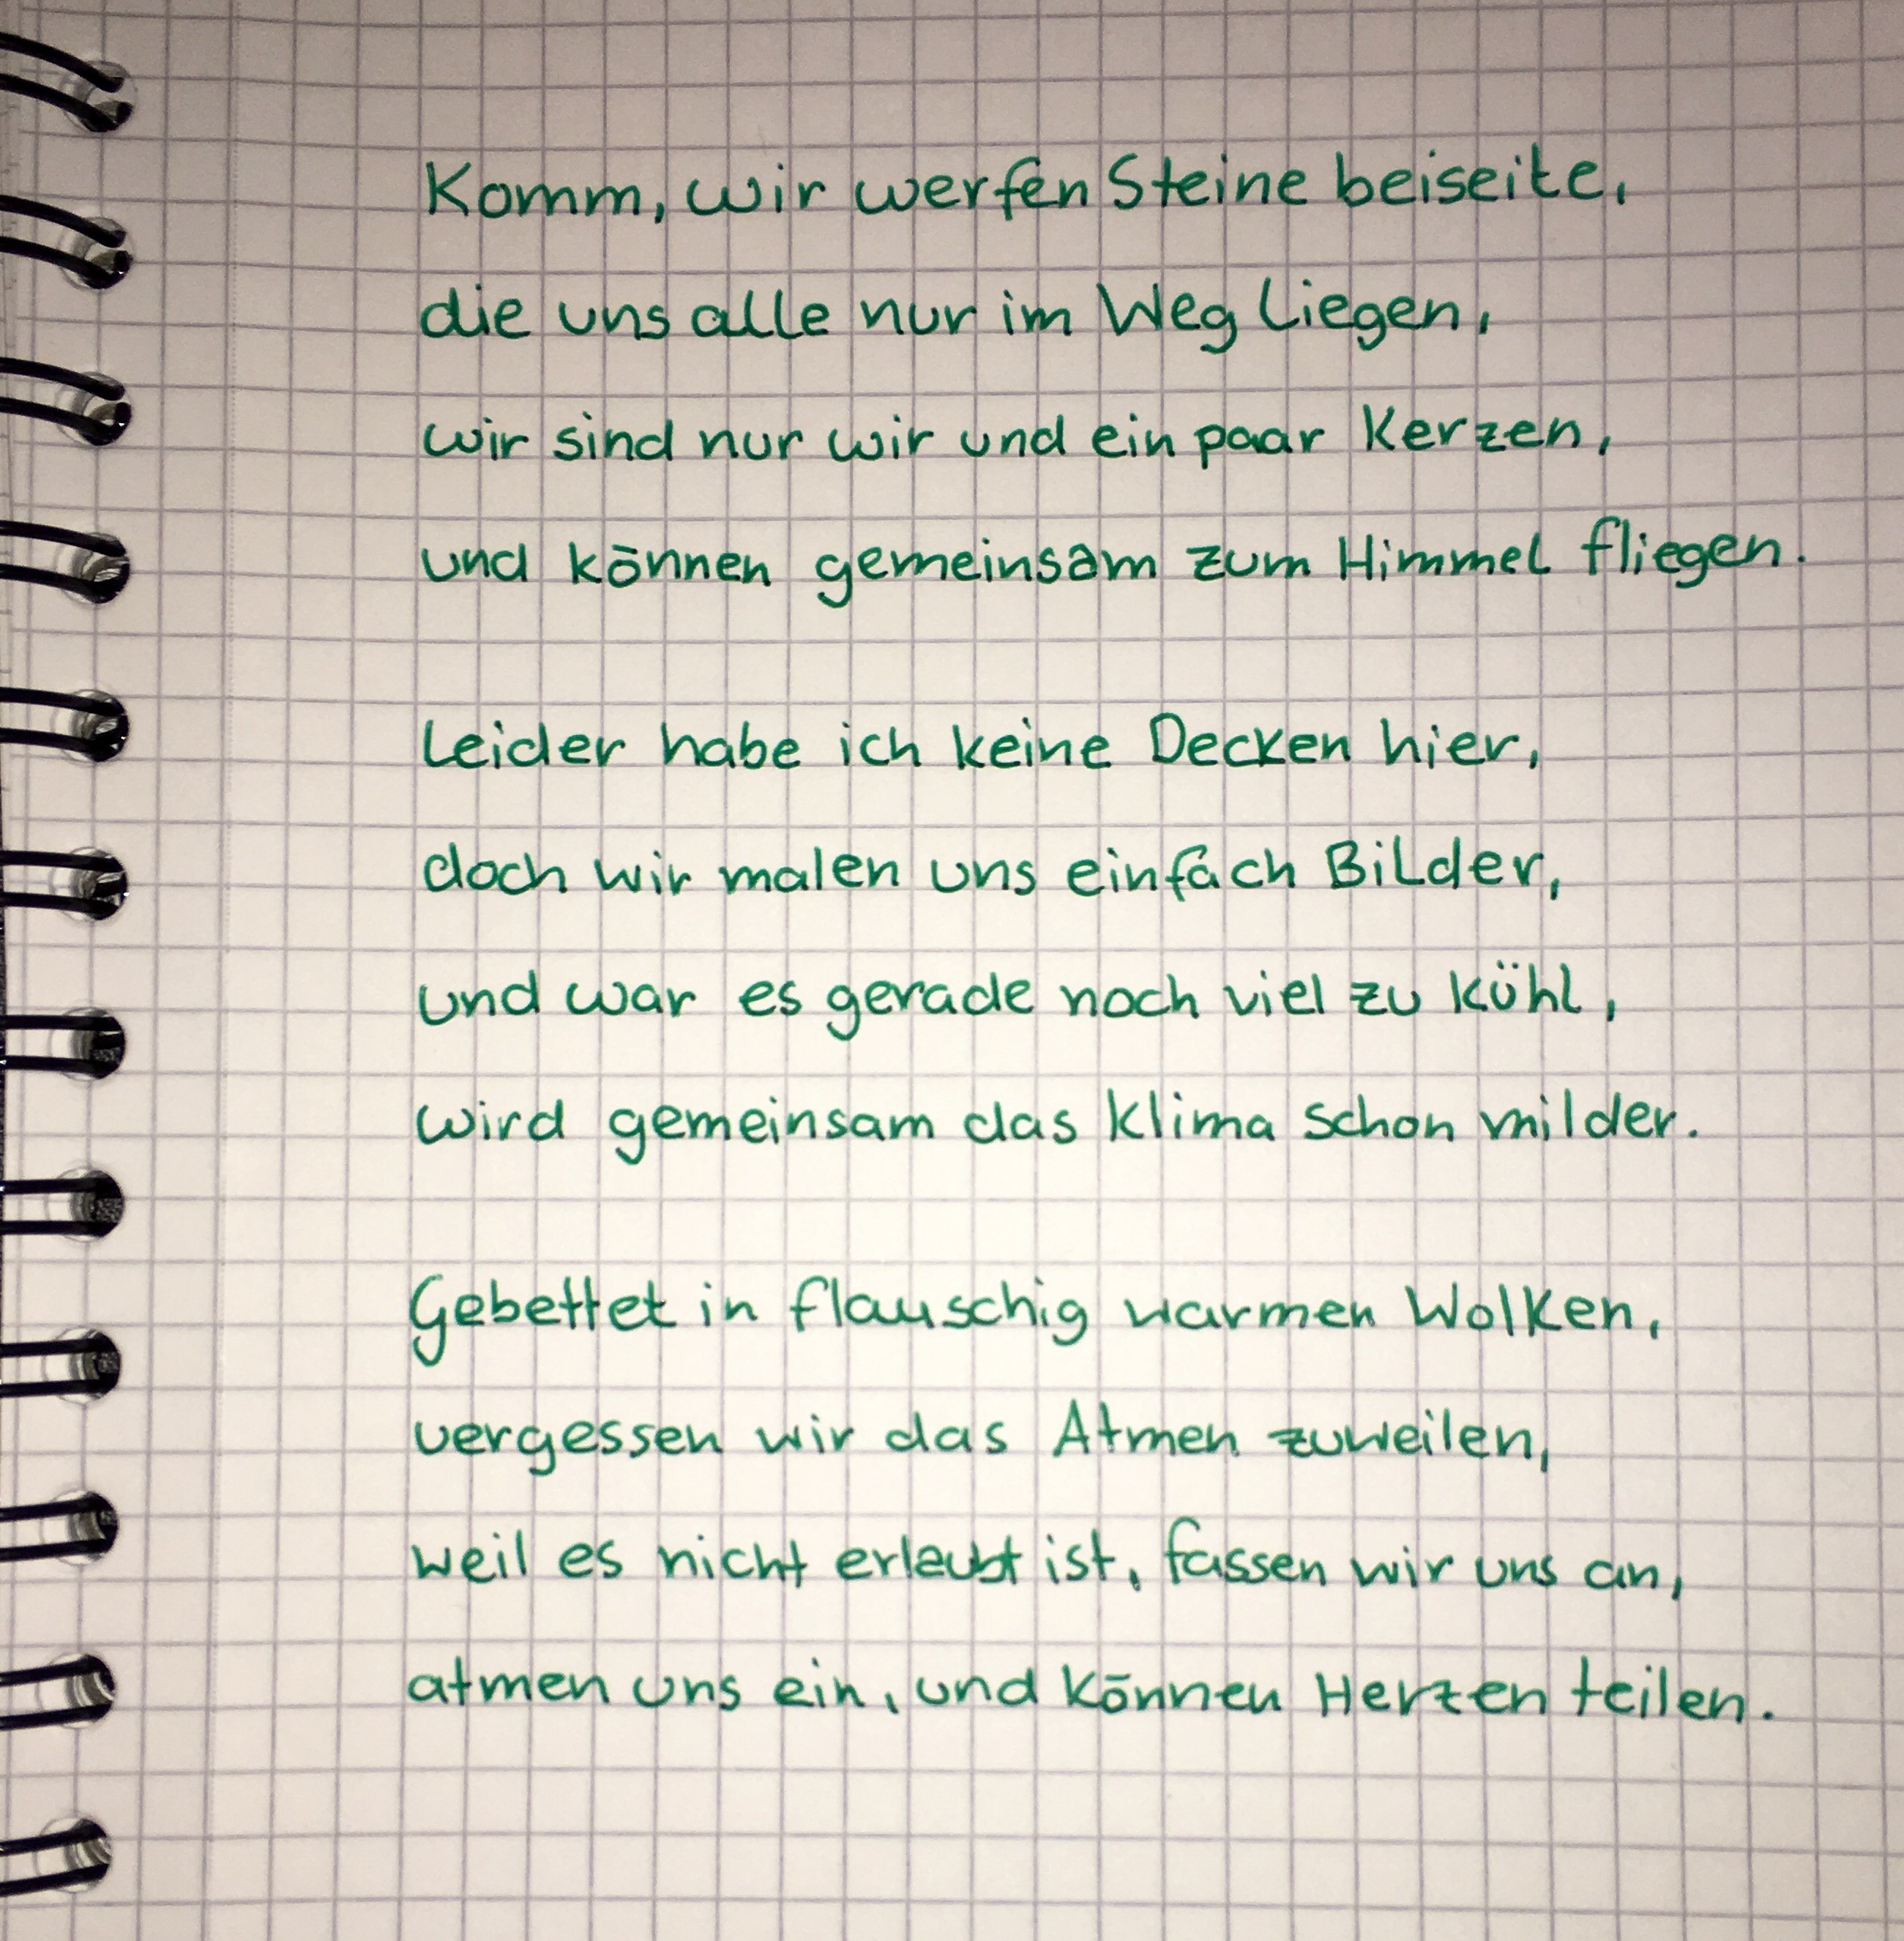 Komm, wir werfen Steine beiseite,
die uns alle nur im Weg liegen,
wir sind nur wir und ein paar Kerzen,
und können gemeinsam zum Himmel fliegen.
Leider habe ich keine Decken hier,
doch wir malen uns einfach Bilder,
und war es gerade noch viel zu kühl,
wird gemeinsam das Klima schon milder.
Gebettet in flauschig warmen Wolken,
vergessen wir das Atmen zuweilen,
weil es nicht erlaubt ist, fassen wir uns an,
atmen uns ein, und können Herzen teilen.